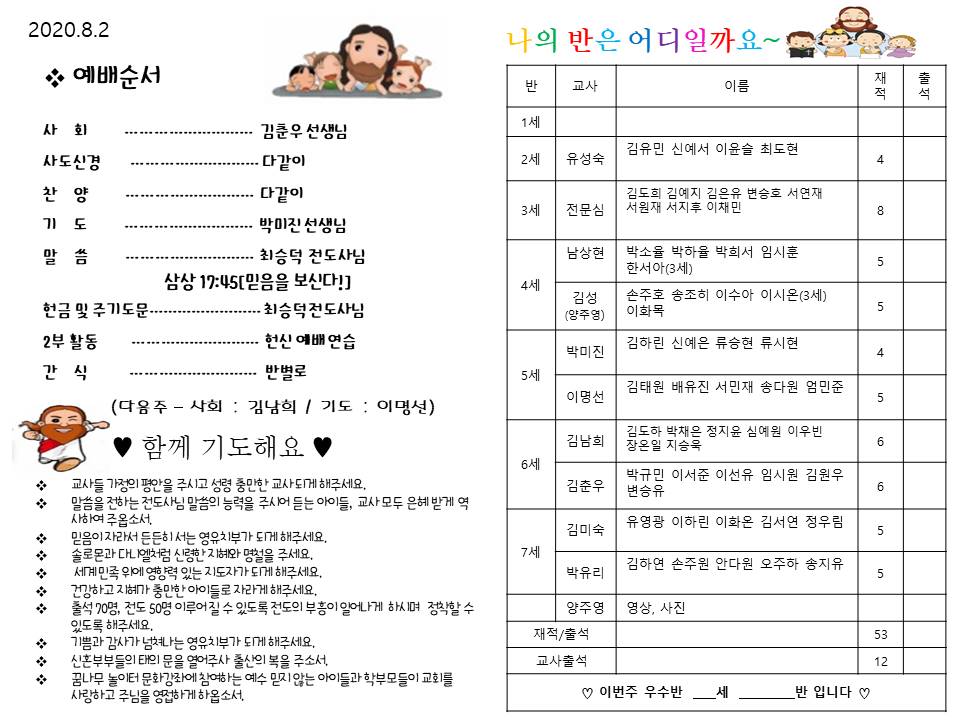 2020.8.2
❖ 예배순서
사 회 --------------------------- 김춘우 선생님
사도신경 --------------------------- 다같이
찬 양 --------------------------- 다같이
기 도 --------------------------- 박미진 선생님
말 씀 --------------------------- 최승덕 전도사님
삼상 17:45[믿음을 보신다!]
헌금 및 주기도문----------------------- 최승덕전도사님
2부 활동 --------------------------- 헌신 예배 연습
간 식 --------------------------- 반별로
(다음주 – 사회 : 김남희 / 기도 : 이명선)
♥ 함께 기도해요 ♥
❖ 교사들 가정의 평안을 주시고 성령 충만한 교사되게 해주세요.
❖ 말씀을 전하는 전도사님 말씀의 능력을 주시어 듣는 아이들, 교사 모두 은혜 받게 역
사하여 주옵소서.
❖ 믿음이 자라서 든든히 서는 영유치부가 되게 해주세요.
❖ 솔로몬과 다니엘처럼 신령한 지혜와 명철을 주세요.
❖ 세계 민족 위에 영향력 있는 지도자가 되게 해주세요.
❖ 건강하고 지혜가 충만한 아이들로 자라게 해주세요.
❖ 출석 70명, 전도 50명 이루어 질 수 있도록 전도의 부흥이 일어나게 하시며 정착할 수
있도록 해주세요.
❖ 기쁨과 감사가 넘쳐나는 영유치부가 되게 해주세요.
❖ 신혼부부들의 태의 문을 열어주사 출산의 복을 주소서.
❖ 꿈나무 놀이터 문화강좌에 참여하는 예수 믿지 않는 아이들과 학부모들이 교회를
사랑하고 주님을 영접하게 하옵소서.
나의 반은 어디일까요~
반 교사 이름 재적 출석
1세
2세 유성숙 김유민 신예서 이윤슬 최도현 4
3세 전문심 김도희 김예지 김은유 변승호 서연재
서원재 서지후 이채민 8
4세 남상현 박소율 박하율 박희서 임시훈
한서아(3세) 5
김성 손주호 송조히 이수아 이시온(3세)
(양주영) 이화목 5
5세 박미진 김하린 신예은 류승현 류시현 4
이명선 김태원 배유진 서민재 송다원 엄민준 5
6세 김남희 김도하 박채은 정지윤 심예원 이우빈
장온일 지승욱 6
김춘우 박규민 이서준 이선유 임시원 김원우
변승유 6
7세 김미숙 유영광 이하린 이화온 김서연 정우림 5
박유리 김하연 손주원 안다원 오주하 송지유 5
양주영 영상, 사진
재적/출석 53
교사출석 12
♡ 이번주 우수반 ___세 ________반 입니다 ♡